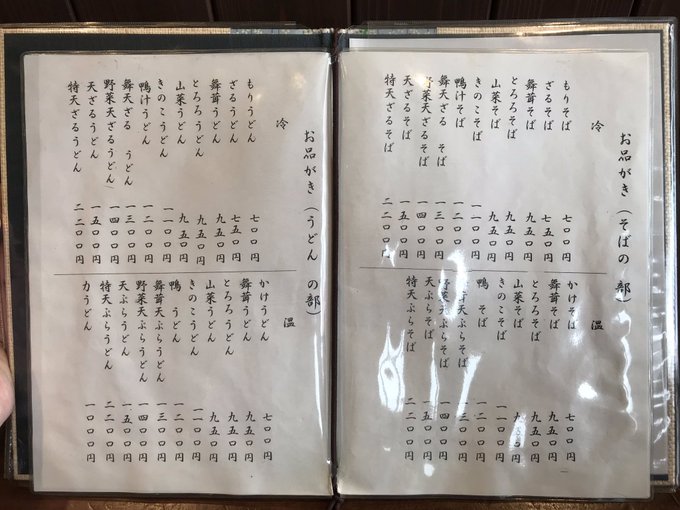 お品がき（そばの 部）
冷
もりそば 七〇〇円
ざるそば 七五〇円
舞茸そば 九五〇円
とろろそば 九五〇円
山菜そば 九五〇円
きのこそば 一一〇〇円
鴨汁そば 一二〇〇円
舞天ざる そば 一三〇〇円
野菜天ざるそば 一四〇〇円
天ざるそば 一五〇〇円
特天ざるそば 二二〇〇円
温
かけそば 七〇〇円
舞茸そば 九五〇円
とろろそば 九五〇円
山菜そば 九五〇円
きのこそば 一一〇〇円
鴨 そば 一二〇〇円
舞茸天ぷらそば 一三〇〇円
野菜天ぷらそば 一四〇〇円
天ぷらそば 一五〇〇円
特天ぷらそば 二二〇〇円
お品がき（うどん の部）
冷
もりうどん 七〇〇円
ざるうどん 七五〇円
舞茸うどん 九五〇円
とろろうどん 九五〇円
山菜うどん 九五〇円
きのこうどん 一一〇〇円
鴨汁うどん 一二〇〇円
舞天ざる うどん 一三〇〇円
野菜天ざるうどん 一四〇〇円
天ざるうどん 一五〇〇円
特天ざるうどん 二二〇〇円
温
かけうどん 七〇〇円
舞茸うどん 九五〇円
とろろうどん 九五〇円
山菜うどん 九五〇円
きのこうどん 一一〇〇円
鴨 うどん 一二〇〇円
舞茸天ぷらうどん 一三〇〇円
野菜天ぷらうどん 一四〇〇円
天ぷらうどん 一五〇〇円
特天ぷらうどん 二二〇〇円
力うどん 一〇〇〇円